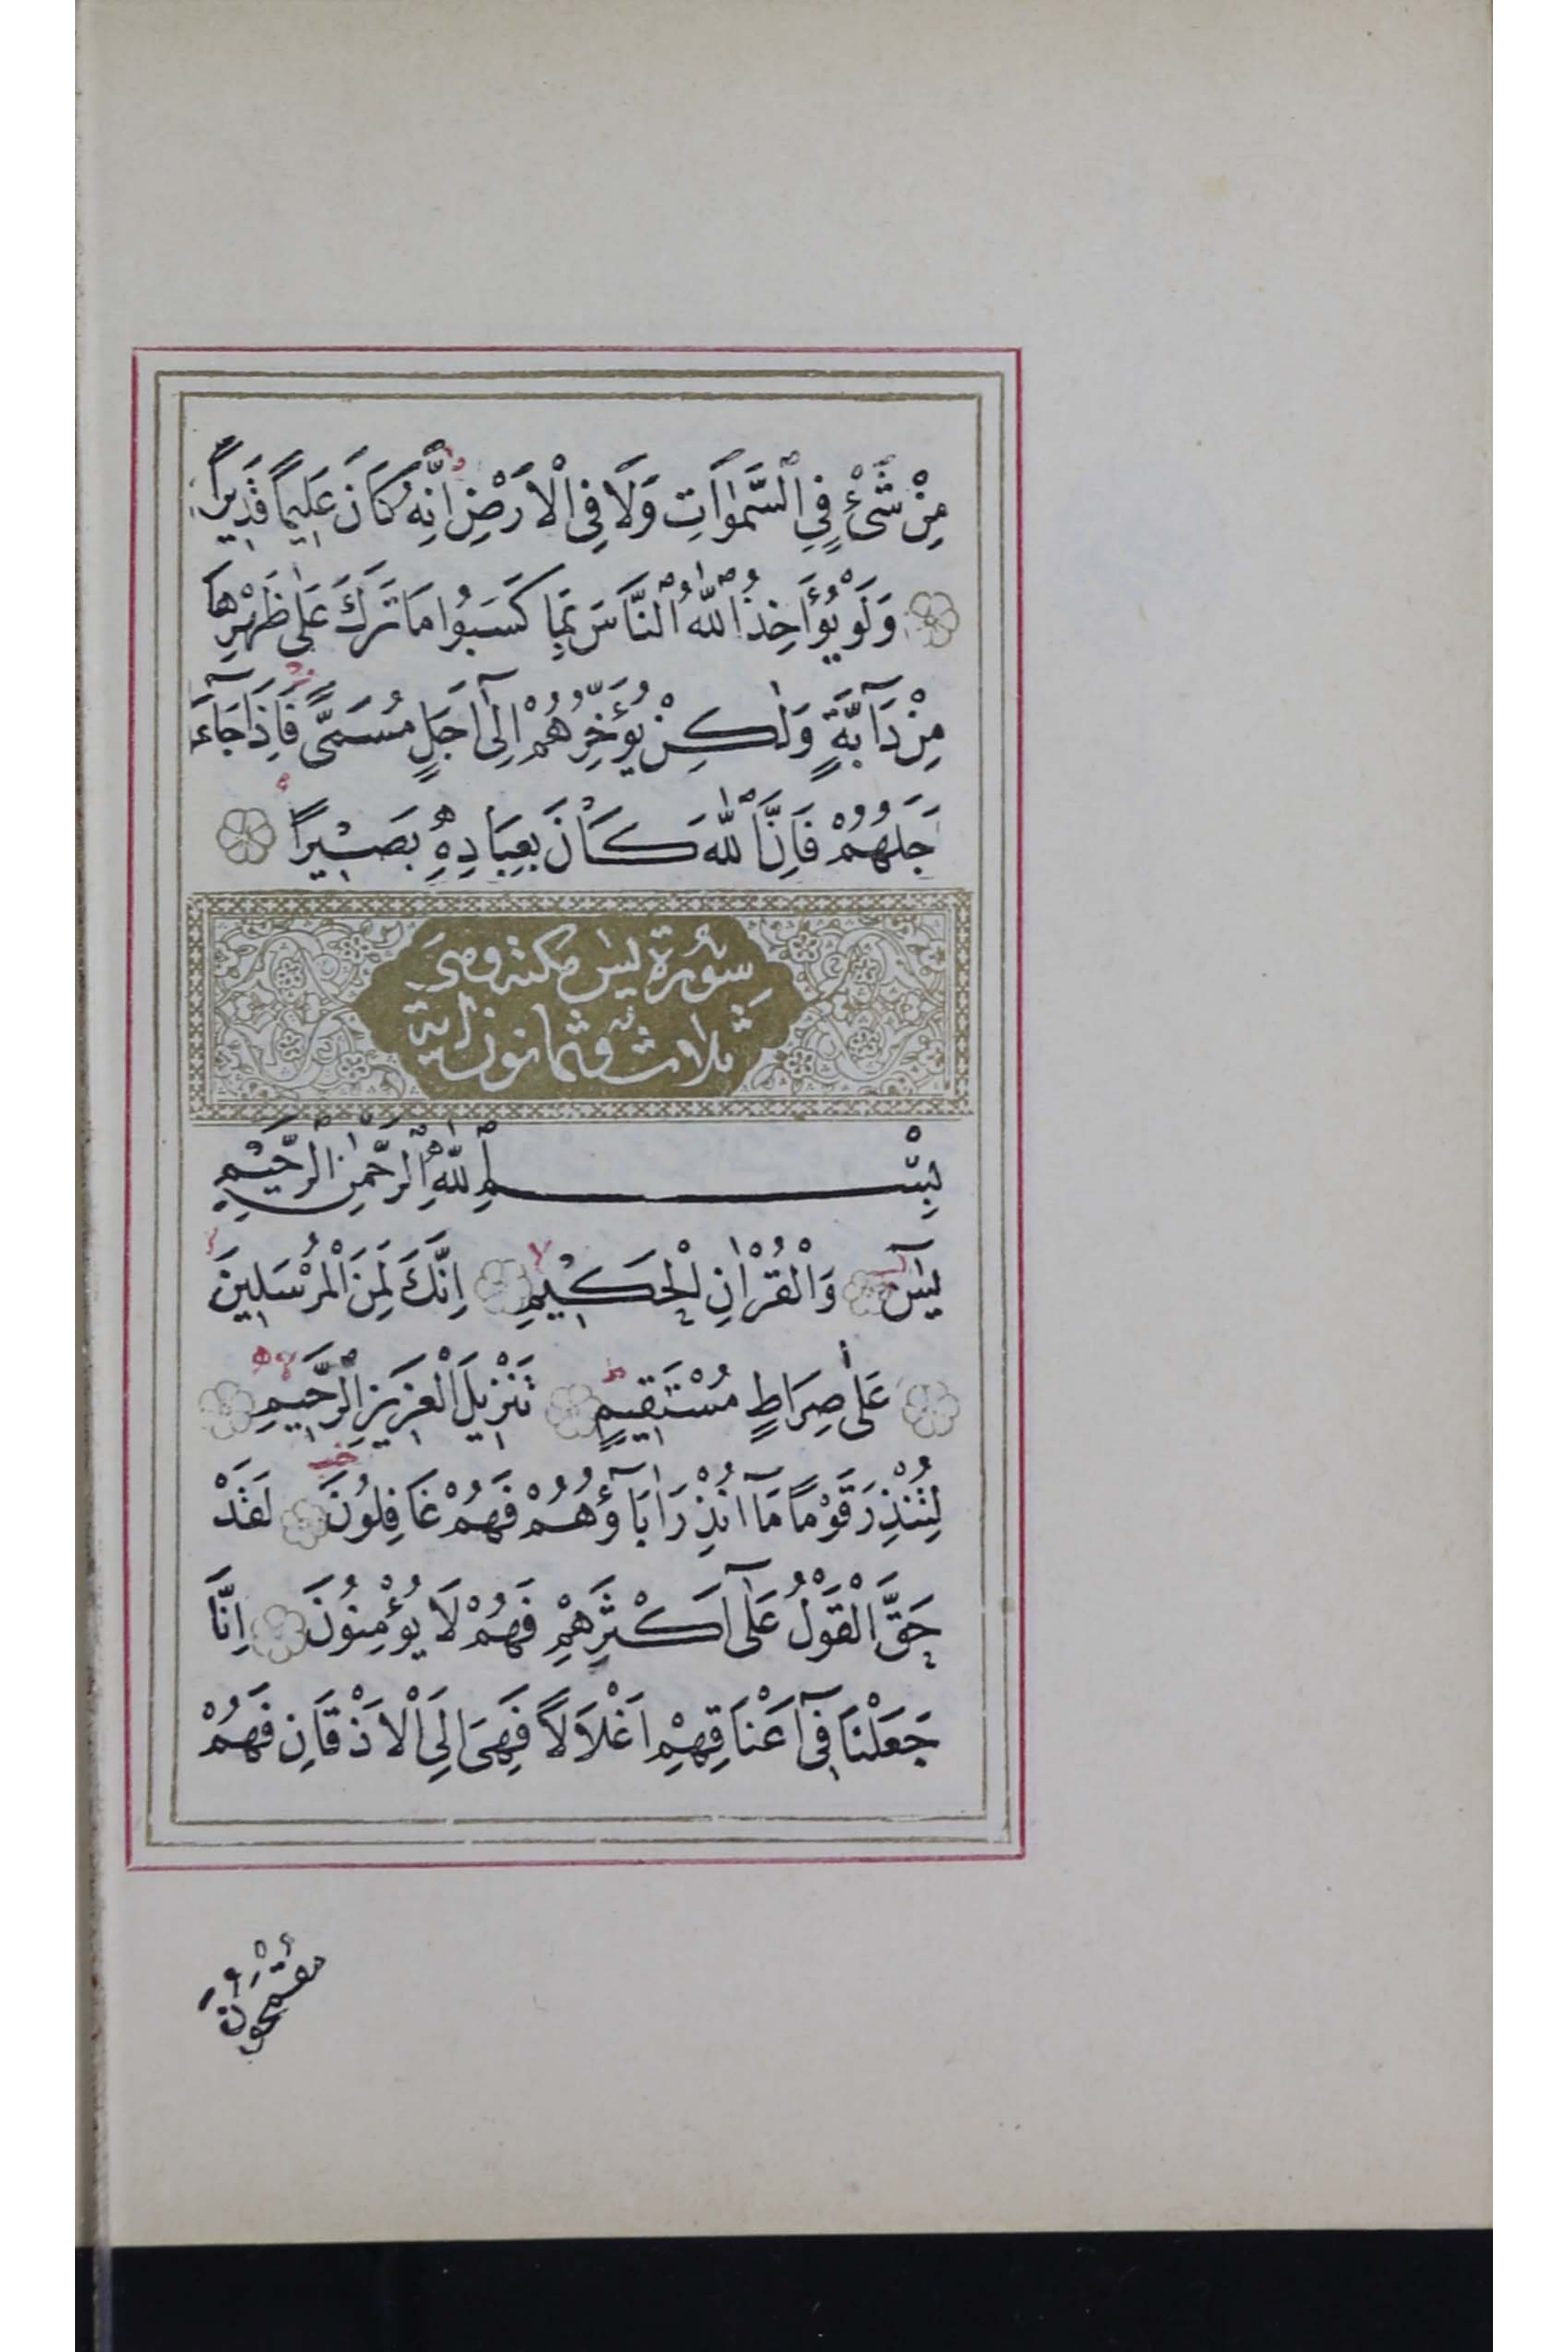 مِنْ شَیْءٍ فِي السَّمٰوَاتِ وَلَا فِي الْاَرْضِ اِنَّهُ كَانَ عَلِيمًا قَدِيرًا
وَلَوْ يُؤَاخِذُ اللّٰهُ النَّاسَ بِمَا كَسَبُوا مَا تَرَكَ عَلٰى ظَهْرِهَا
مِنْ دَآبَّةٍ وَلٰكِنْ يُؤَخِّرُهُمْ اِلٰٓى اَجَلٍ مُسَمًّى فَاِذَا جَآءَ
جَلُهُمْ فَاِنَّ اللّٰهَ كَانَ بِعِبَادِهِ بَصِيْرًا
سُورَة يٰس مكية وهى
ثلاث وثمانون اية
بِسْمِ اللّٰهِ الرَّحْمٰنِ الرَّحِيْمِ
يٰسٓ وَالْقُرْاٰنِ الْحَكِيْمِ اِنَّكَ لَمِنَ الْمُرْسَلِينَ
عَلٰى صِرَاطٍ مُسْتَقِيمٍ تَنْزِيلَ الْعَزِيزِ الرَّحِيمِ
لِتُنْذِرَ قَوْمًا مَآ اُنْذِرَ اٰبَآؤُهُمْ فَهُمْ غَافِلُونَ لَقَدْ
حَقَّ الْقَوْلُ عَلٰٓى اَكْثَرِهِمْ فَهُمْ لَا يُؤْمِنُونَ اِنَّا
جَعَلْنَا فِىٓ اَعْنَاقِهِمْ اَغْلَالًا فَهِىَ اِلَى الْاَذْقَانِ فَهُمْ
مُقْمَحُونَ